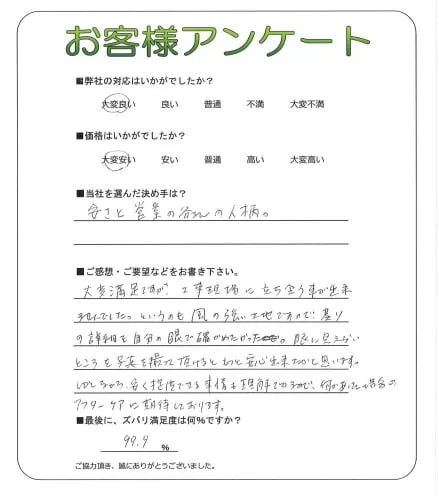 お客様アンケート
■弊社の対応はいかがでしたか？
大変良い 良い 普通 不満 大変不満
■価格はいかがでしたか？
大変安い 安い 普通 高い 大変高い
■当社を選んだ決め手は？
安さと営業の の人柄。
■ご感想・ご要望などをお書き下さい。
大変満足ですが、工事現場に立ち会う事が出来
ませんでした。というのも風の強い土地ですので、
の詳細を自分の眼で確かめたかった。眼に見えない
ところを写真を撮って頂けるともっと安心出来たかと思います。
しかしながら、安く提供できる事情も理解できるので、何かあった場合の
アフターケアに期待しております。
■最後に、ズバリ満足度は何％ですか？
99.9 ％
ご協力頂き、誠にありがとうございました。